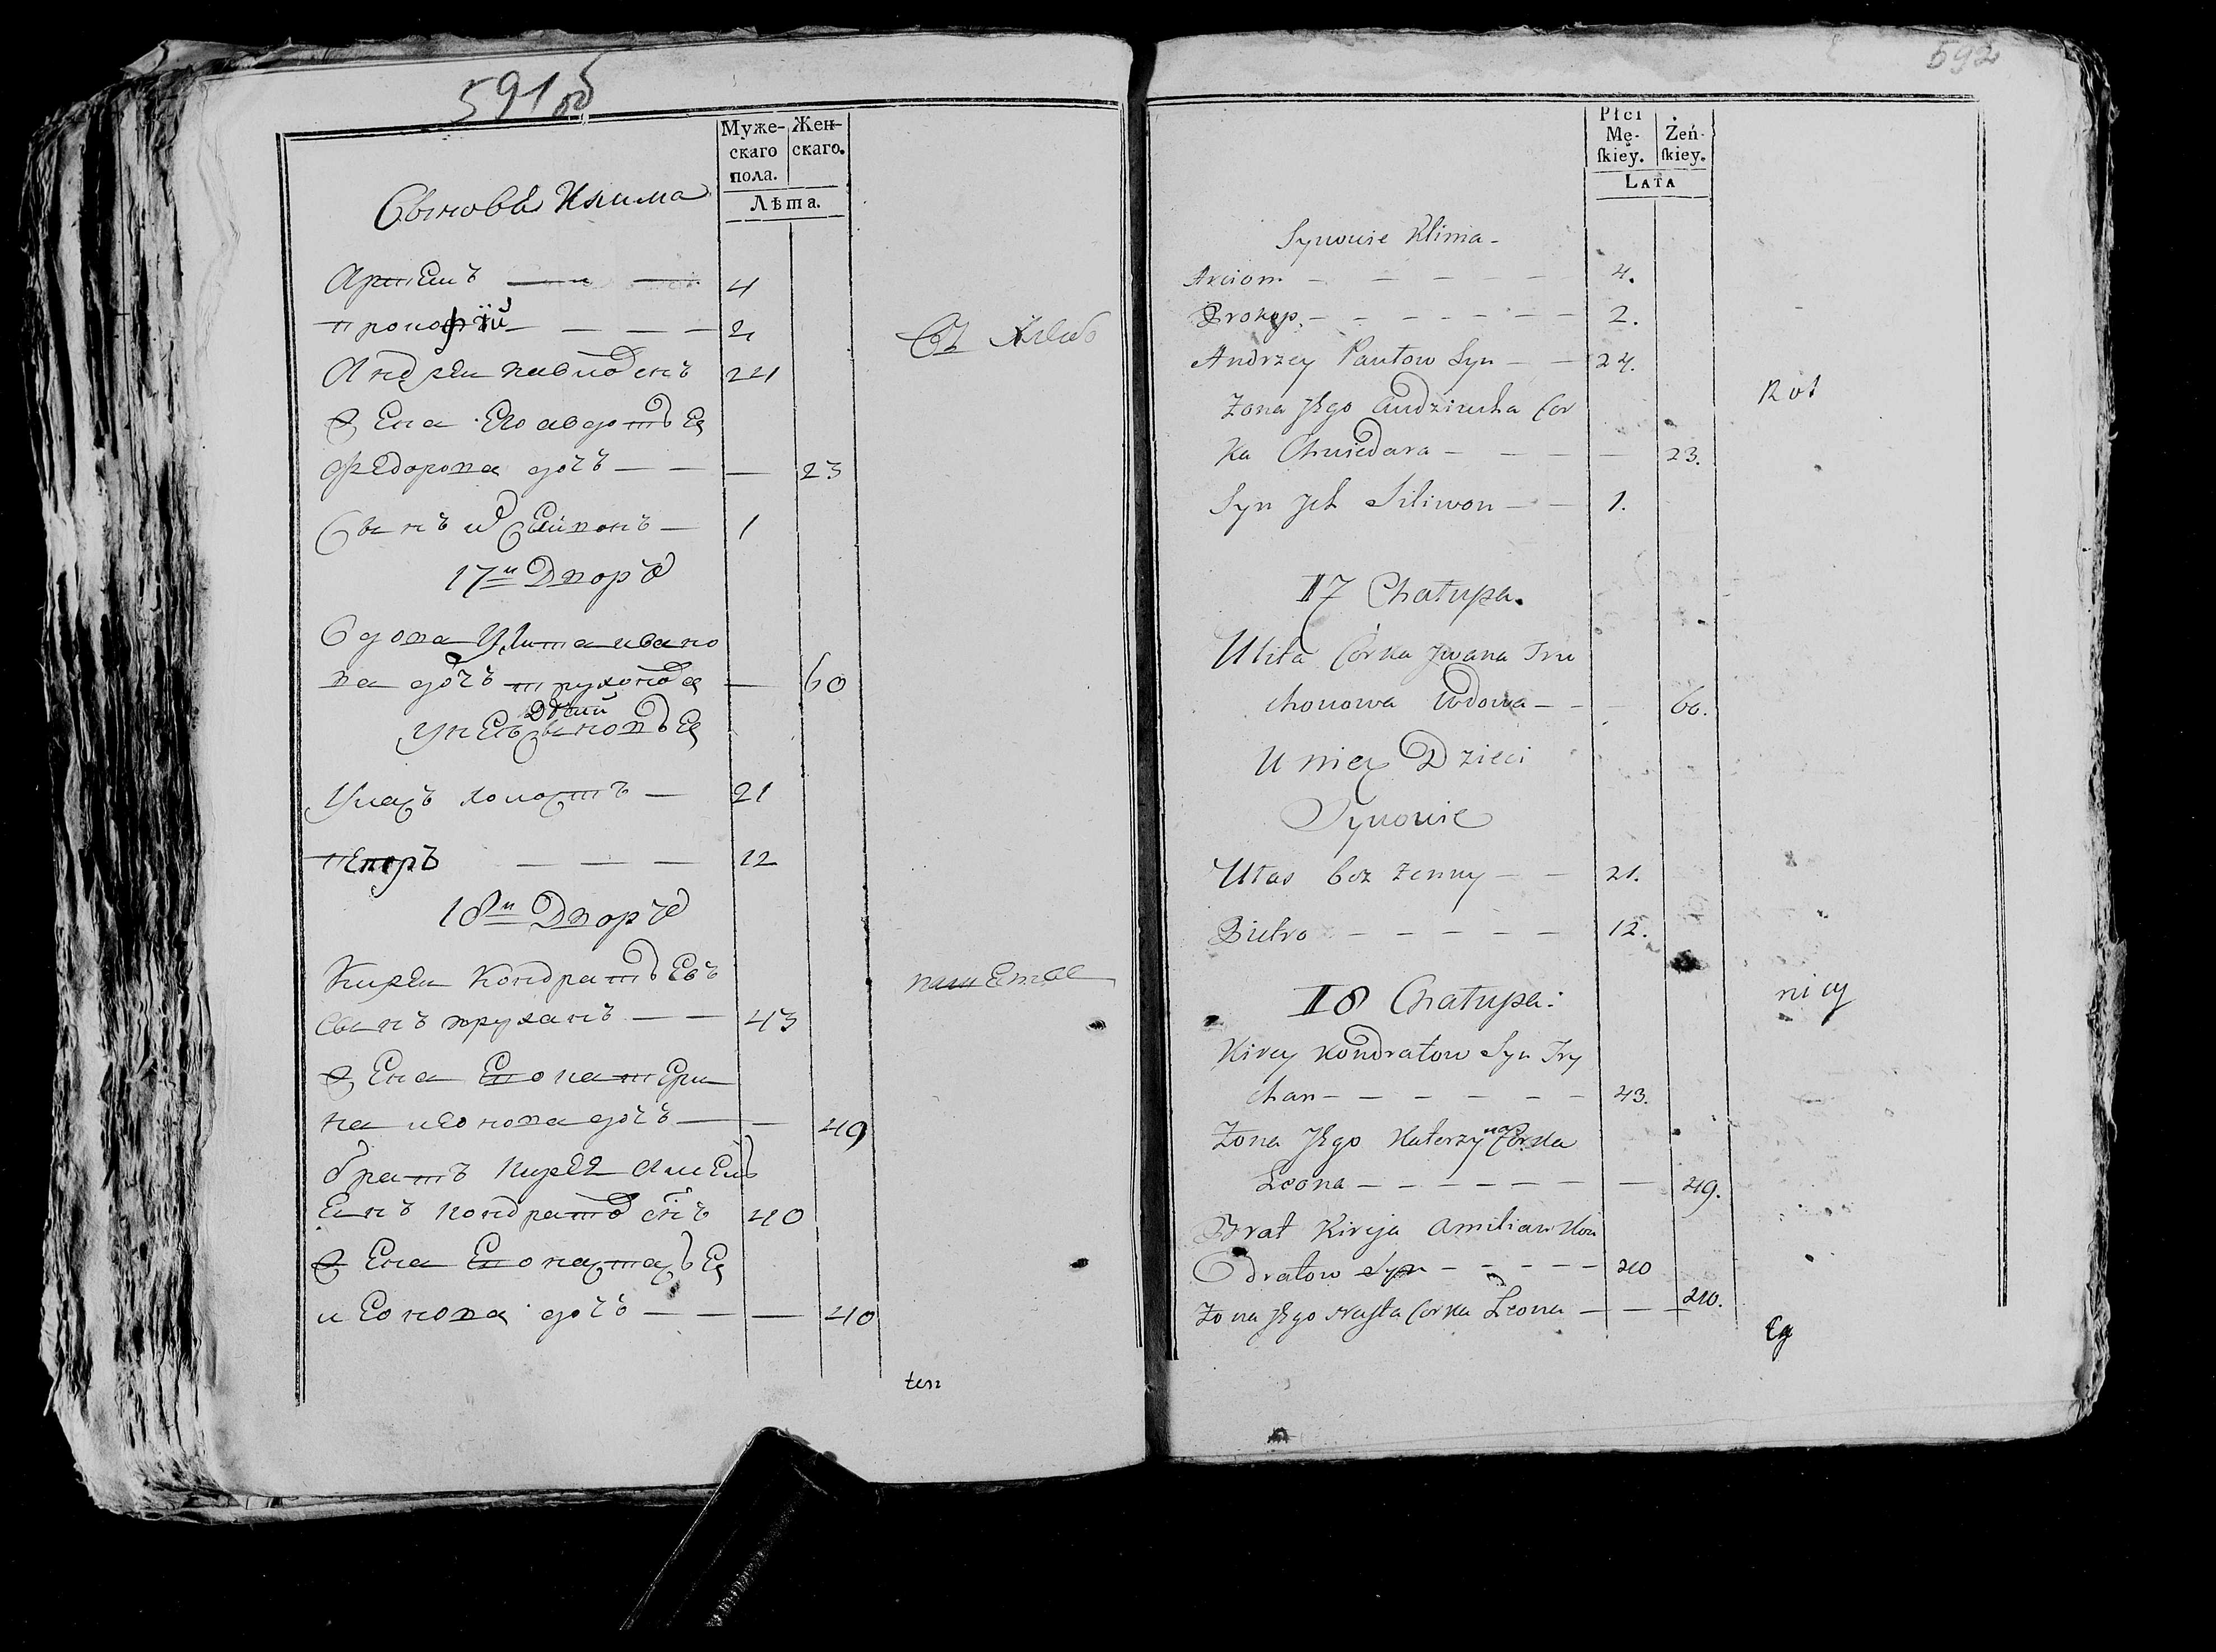 591об
Муже-
скаго
пола.
Жен-
скаго.
Лѣта.
Сынова Клима
Артемъ — — 4
прокофiй — — — — 2
Андреи павлов снъ 24
Жена Его авдотьЕя
федорова дочъ — — — 23
Сынъ их — 1
17й Дворъ
вдова Улита ивано
ва дочъ трухонова — 60
унЕя дѣтей сыновъЕя
Уласъ холостъ — 21
пЕтръ — — — 12
18й Дворъ
Кирѣи КондратьЕвъ
сынъ труханъ — — 43
Жена Его катЕри
на лЕонова дочъ — — 49
братъ кирѣя АмЕль
Енъ кондратов снъ 40
Жена Его настасьЕя
лЕонова дочъ — — — 40
ten
592
Płci
Mę-
ſkiey.
Żeń-
ſkiey.
Lata
Synowie Klima -
Arciom — — — — — 4.
Prokop. — — — — — — 2.
Andrzey Pawłow Syn — — 24.
Zona Jego Audziucha Cor
ka Chwiedara — — — — 23.
Syn Jch Siliwon — — 1.
17 Chałupa.
Ulita Córka Jwana Tru
chonowa Wdowa — — — 60.
U niey Dzieci
Synowie
Ułas bez żenny — — 21.
Pietro — — — — — 12.
18 Chałupa:
Kirey Kondratow Syn Try
chan — — — — — — 43.
Żona Jego Katerzyna Córka
Leona — — — — — — — 49.
Brat Kireja Amilian Kon
dratow Syn — — — — — 40
Żona Jego Nasta Corka Leona — — — 40.